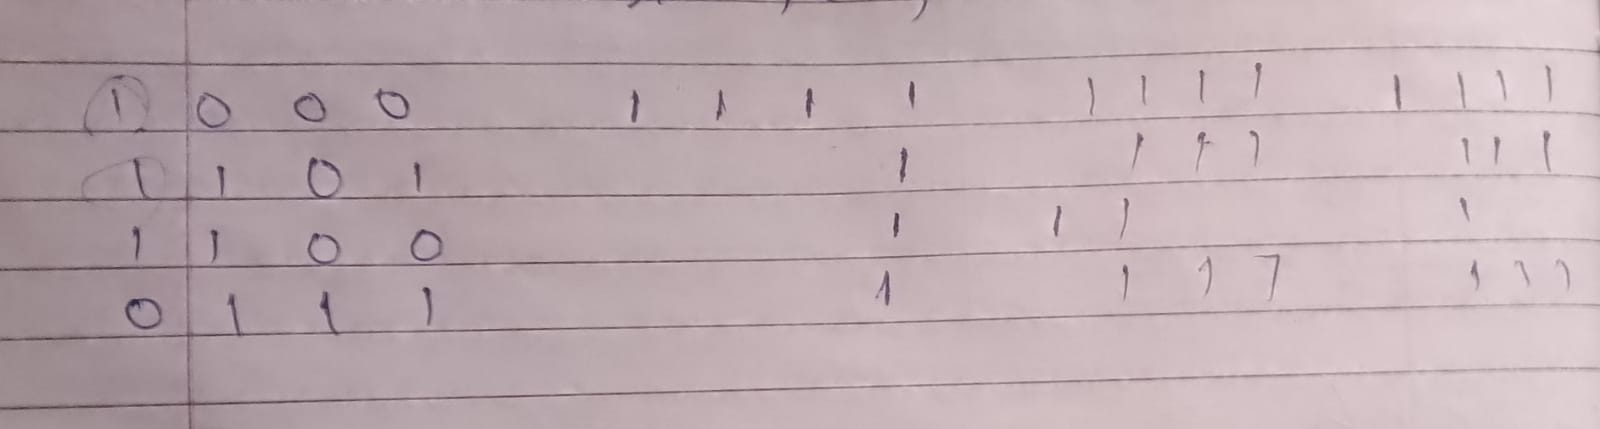 1 0 0 0 1 1 1 1 1 1 1 1 1 1 1 1
1 1 0 1 1 1 1 1 1 1 1
1 1 0 0 1 1 1 1
0 1 1 1 1 1 1 7 1 1 1